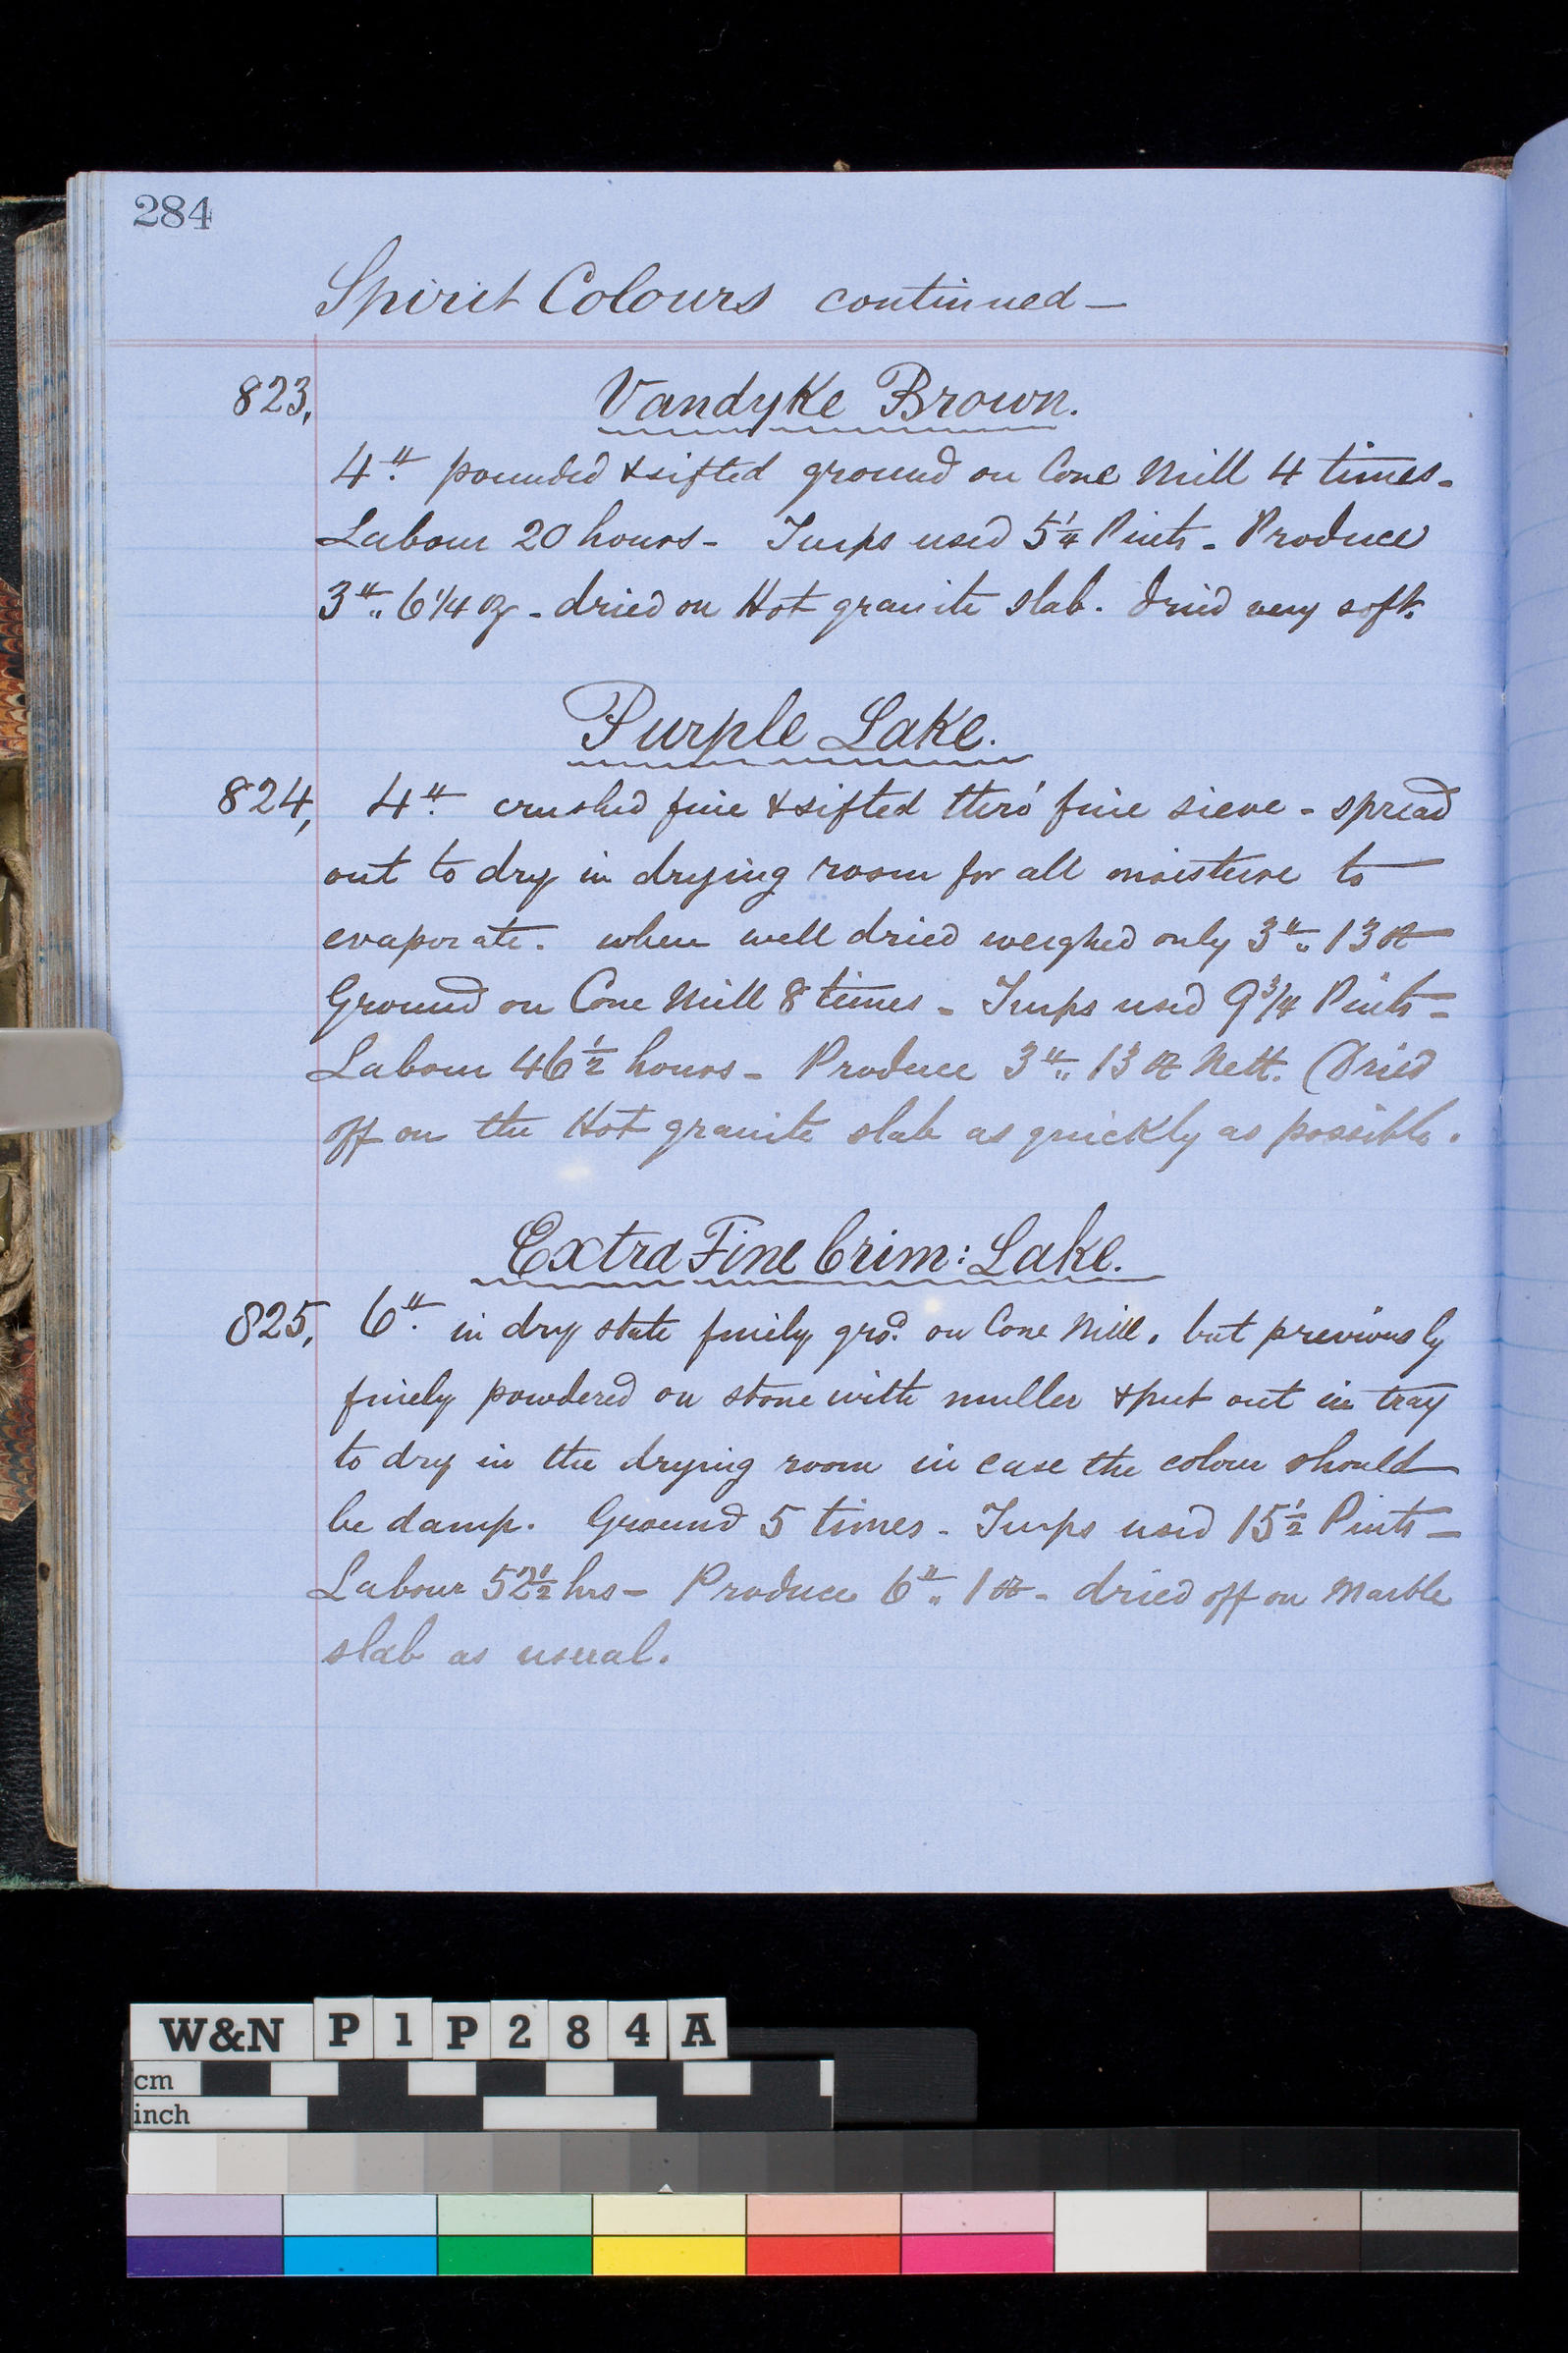 284
Spirit Colours continued —
823, Vandyke Brown.
4 lb. pounded & sifted ground on Cone Mill 4 times -
Labour 20 hours - Turps used 5 1/4 Pints - Produce
3 lb.. 6 1/4 oz - dried on Hot granite slab. dried very soft.
Purple Lake.
824, 4 lb. crushed fine & sifted thro' fine sieve - spread
out to dry in drying room for all moisture to
evaporate. when well dried weighed only 3 lb.. 13 oz
Ground on Cone Mill 8 times - Turps used 9 3/4 Pints -
Labour 46 1/2 hours - Produce 3 lb.. 13 oz Nett. (Dried
off on the Hot granite slab as quickly as possible.
Extra Fine Crim: Lake.
825, 6 lb. in dry state finely gro.d on Cone Mill, but previously
finely powdered on stone with muller & put out in tray
to dry in the drying room in case the colour should
be damp. Ground 5 times - Turps used 15 1/2 Pints -
Labour 52 1/2 hrs - Produce 6 lb.. 1 oz - dried off on Marble
slab as usual.
W&N P1P284A
cm
inch